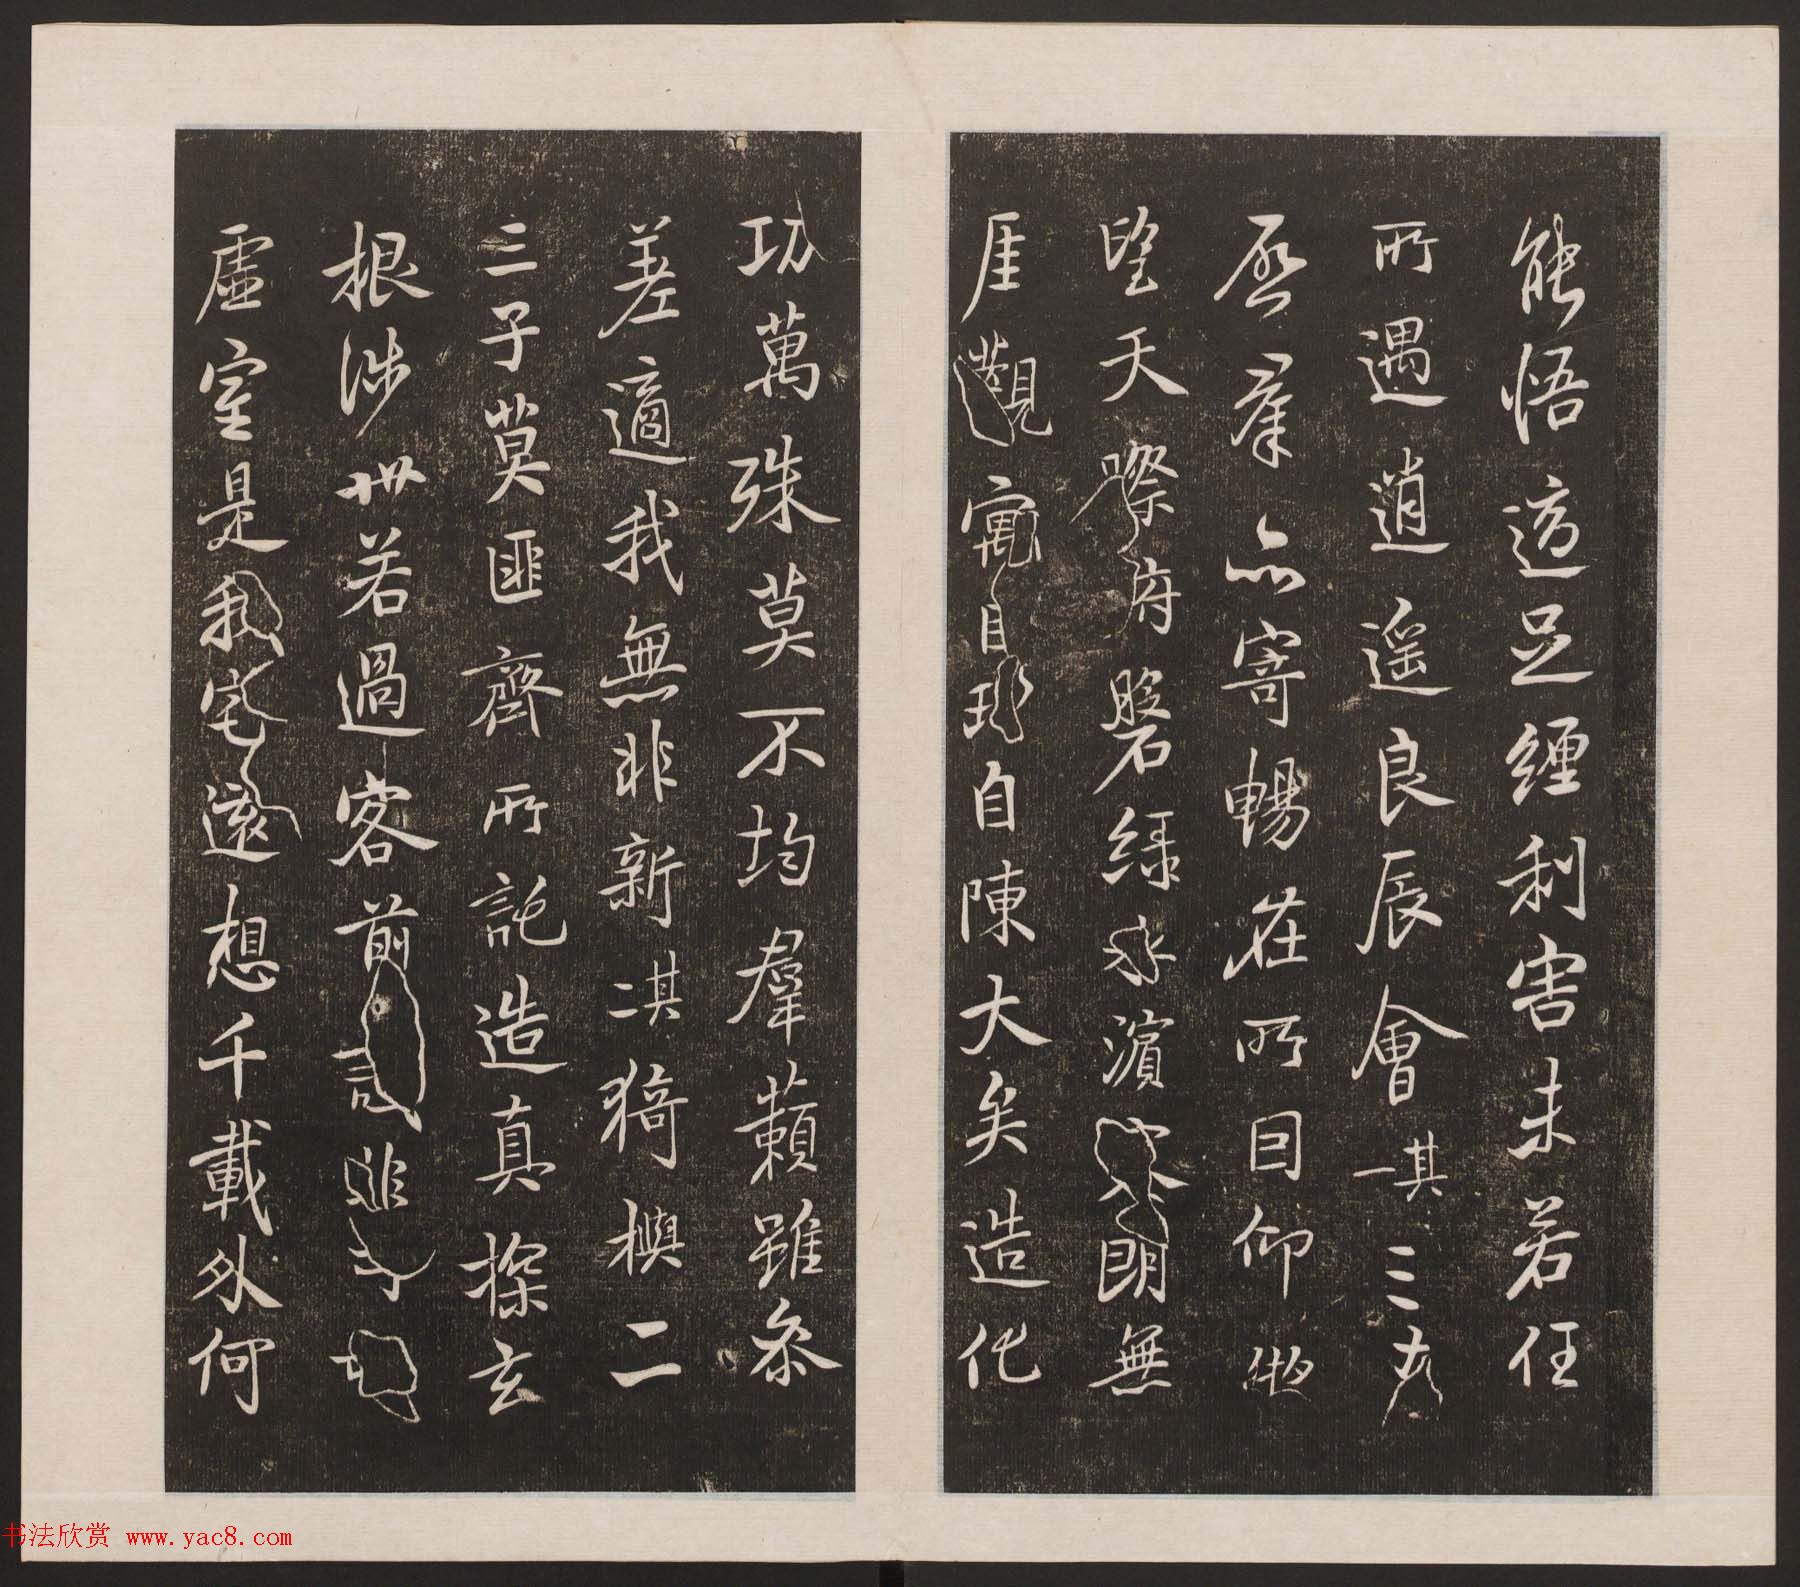 能悟適足纏利害未若任
所遇逍遥良辰會其一三春
啓羣品寄暢在所因仰𠋣
望天際府磐緑水濱寥朗無
厓觀寓目理自陳大矣造化
功萬殊莫不均羣籟雖参
差適我無非新其二猗與二
三子莫匪齊所託造真探玄
根涉世若過客前識非所期
虛室是我宅遠想千載外何
书法欣赏 www.yac8.com